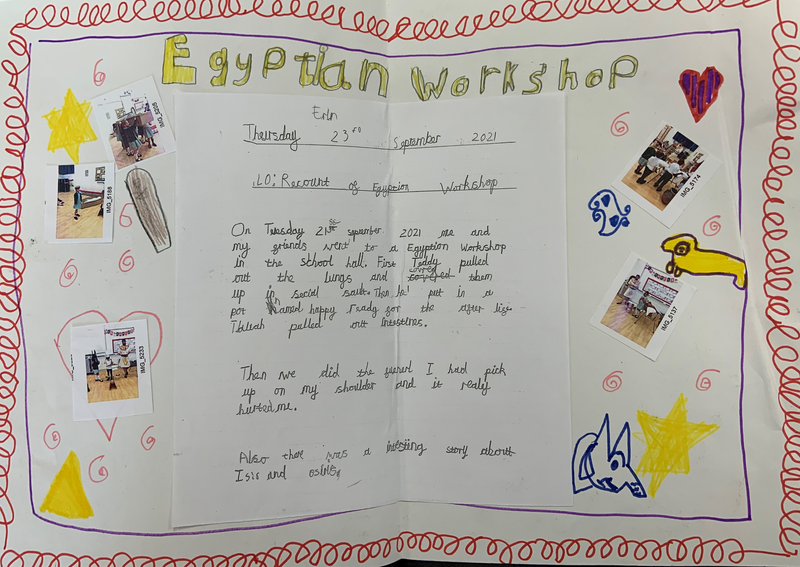 Egyptian Workshop
Erin
Thursday 23rd September 2021
LO: Recount of Egyption Workshop
On Tuesday 21st september 2021 me and
my griends went to a Egyption Workshop
in the school hall. First Teddy pulled
out the lungs and covred them
up in social sault. Then he put in a
pot named happy ready for the after lige.
pulled out intestines.
Then we did the I had pick
up on my shoulder and it realy
hurted me.
Also there was a story about
Isis and
IMG_5208
IMG_5188
IMG_5233
IMG_5174
IMG_5137